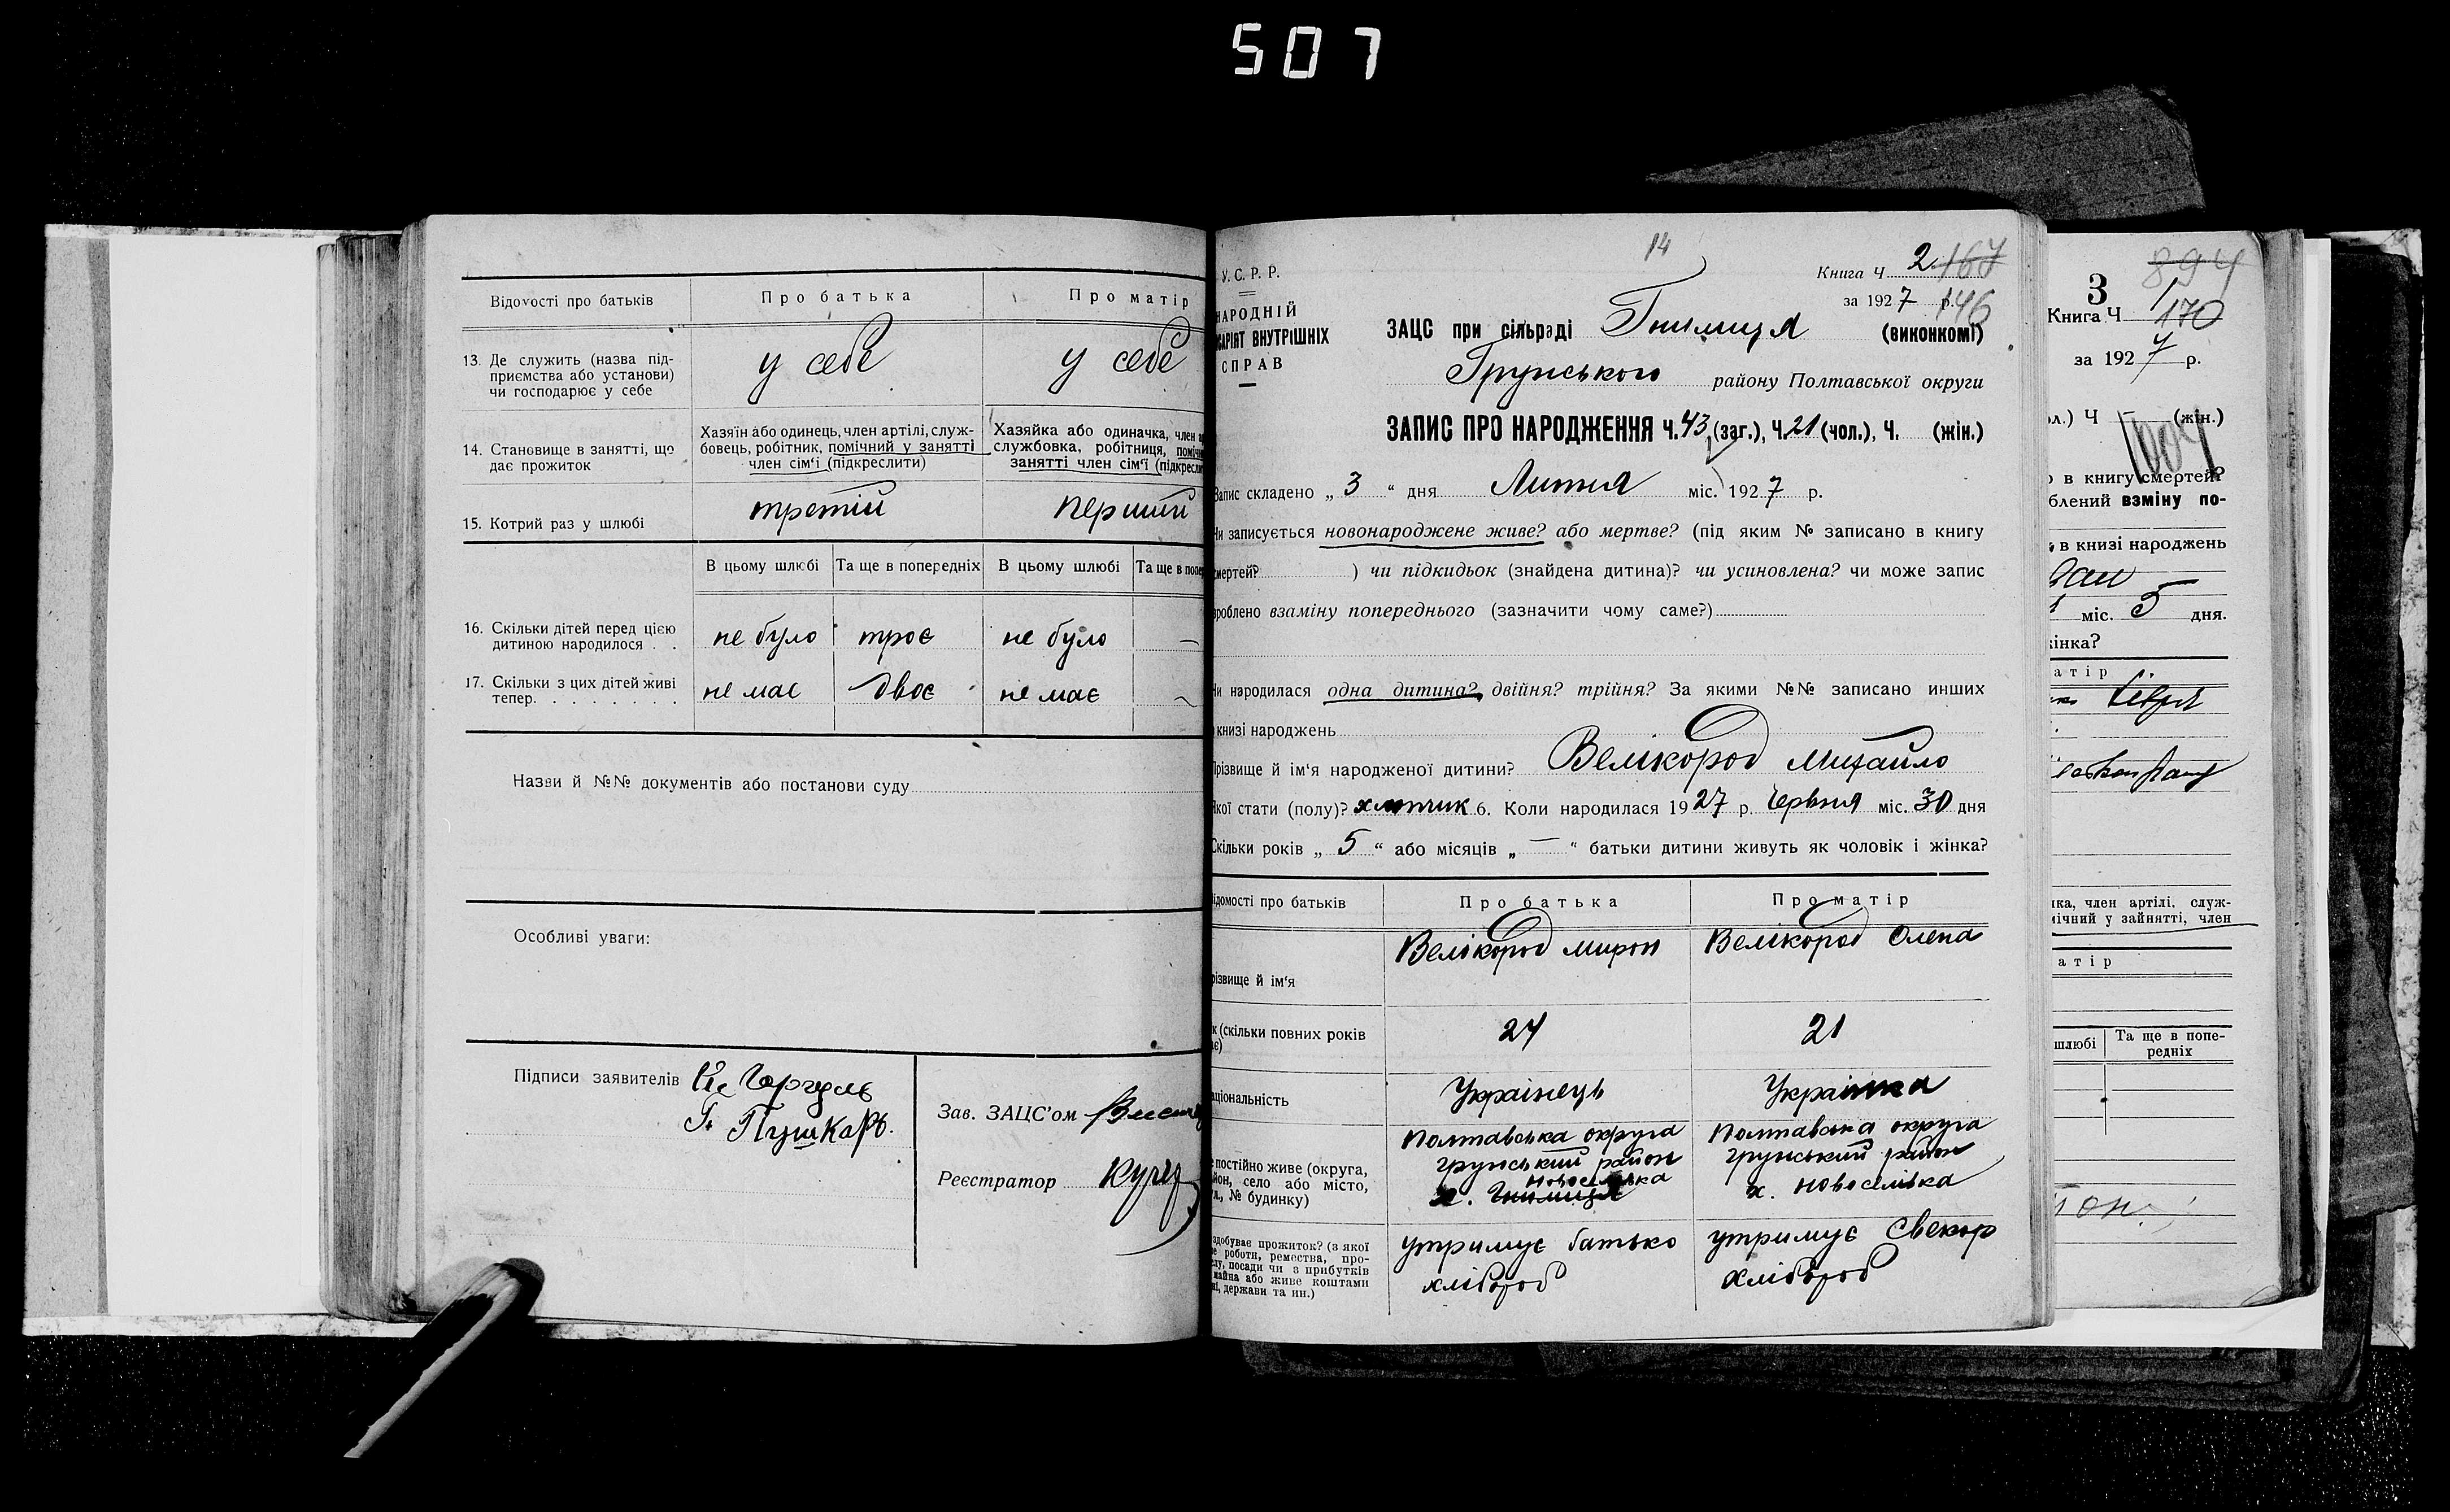 507
Відомості про батьків
Про батька
Про матір
13. Де служить (назва під-
приємства або установи)
чи господарює у себе
у себе
у себе
14. Становище в занятті, що
дає прожиток
Хазяїн або одинець, член артілі, служ-
бовець, робітник, помічний у занятті
член сім'ї (підкреслити)
Хазяйка або одиначка, член
службовка, робітниця,
занятті член сім'ї
15. Котрий раз у шлюбі
третій
перший
В цьому шлюбі
Та ще в попередніх
В цьому шлюбі
Та ще в
16. Скільки дітей перед цією
дитиною народилося . .
не було
троє
не було
—
17. Скільки з цих дітей живі
тепер. . . . . . . .
не має
двоє
не має
~
Назви й №№ документів або постанови суду
Особливі уваги:
Підписи заявителів
Г. Пушкарь.
Зав. ЗАЦС'ом
Реєстратор
14
У. С. Р. Р.
НАРОДНІЙ
САРІЯТ ВНУТРІШНІХ
СПРАВ
Книга Ч 2 167
за 1927 р. 146
ЗАЦС при сільраді Гнилиця (виконкомі)
Грунського району Полтавської округи
ЗАПИС ПРО НАРОДЖЕННЯ Ч. 43 (заг.), Ч. 21 (чол.), Ч. (жін.)
Запис складено „ 3 “ дня Липня міс. 1927 р.
Чи записується новонароджене живе? або мертве? (під яким № записано в книгу
смертей? ) чи підкидьок (знайдена дитина)? чи усиновлена? чи може запис
зроблено взаміну попереднього (зазначити чому саме?)
Чи народилася одна дитина? двійня? трійня? За якими №№ записано инших
книзі народжень
Прізвище й ім'я народженої дитини? Велікород Михайло
Якої стати (полу)? хлопчик 6. Коли народилася 1927 р. Червня міс. 30 дня
Скільки років „ 5 “ або місяців „ — “ батьки дитини живуть як чоловік і жінка?
Відомості про батьків
Про батька
Про матір
прізвище й ім'я
Велікород Мирон
Велікород Олена
(скільки повних років
24
21
національність
Українець
Українка
постійно живе (округа,
район, село або місто,
№ будинку)
Полтавська округа
грунський район
Новоселівка
х. Гнилиця
Полтавська округа
грунський район
х. Новоселівка
здобуває прожиток? (з якої
роботи, ремества, про-
посади чи з прибутків
майна або живе коштами
держави та ин.)
утримує батько
хлібороб
утримує Свекор
хлібороб
3
894
Книга Ч 170
за 1927 р.
Ч — (жін.)
в книгу смертей?
взміну по-
в книзі народжень
міс. 5 дня.
жінка?
матір
член артілі, служ-
у зайнятті, член
матір
шлюбі
Та ще в попе-
редніх